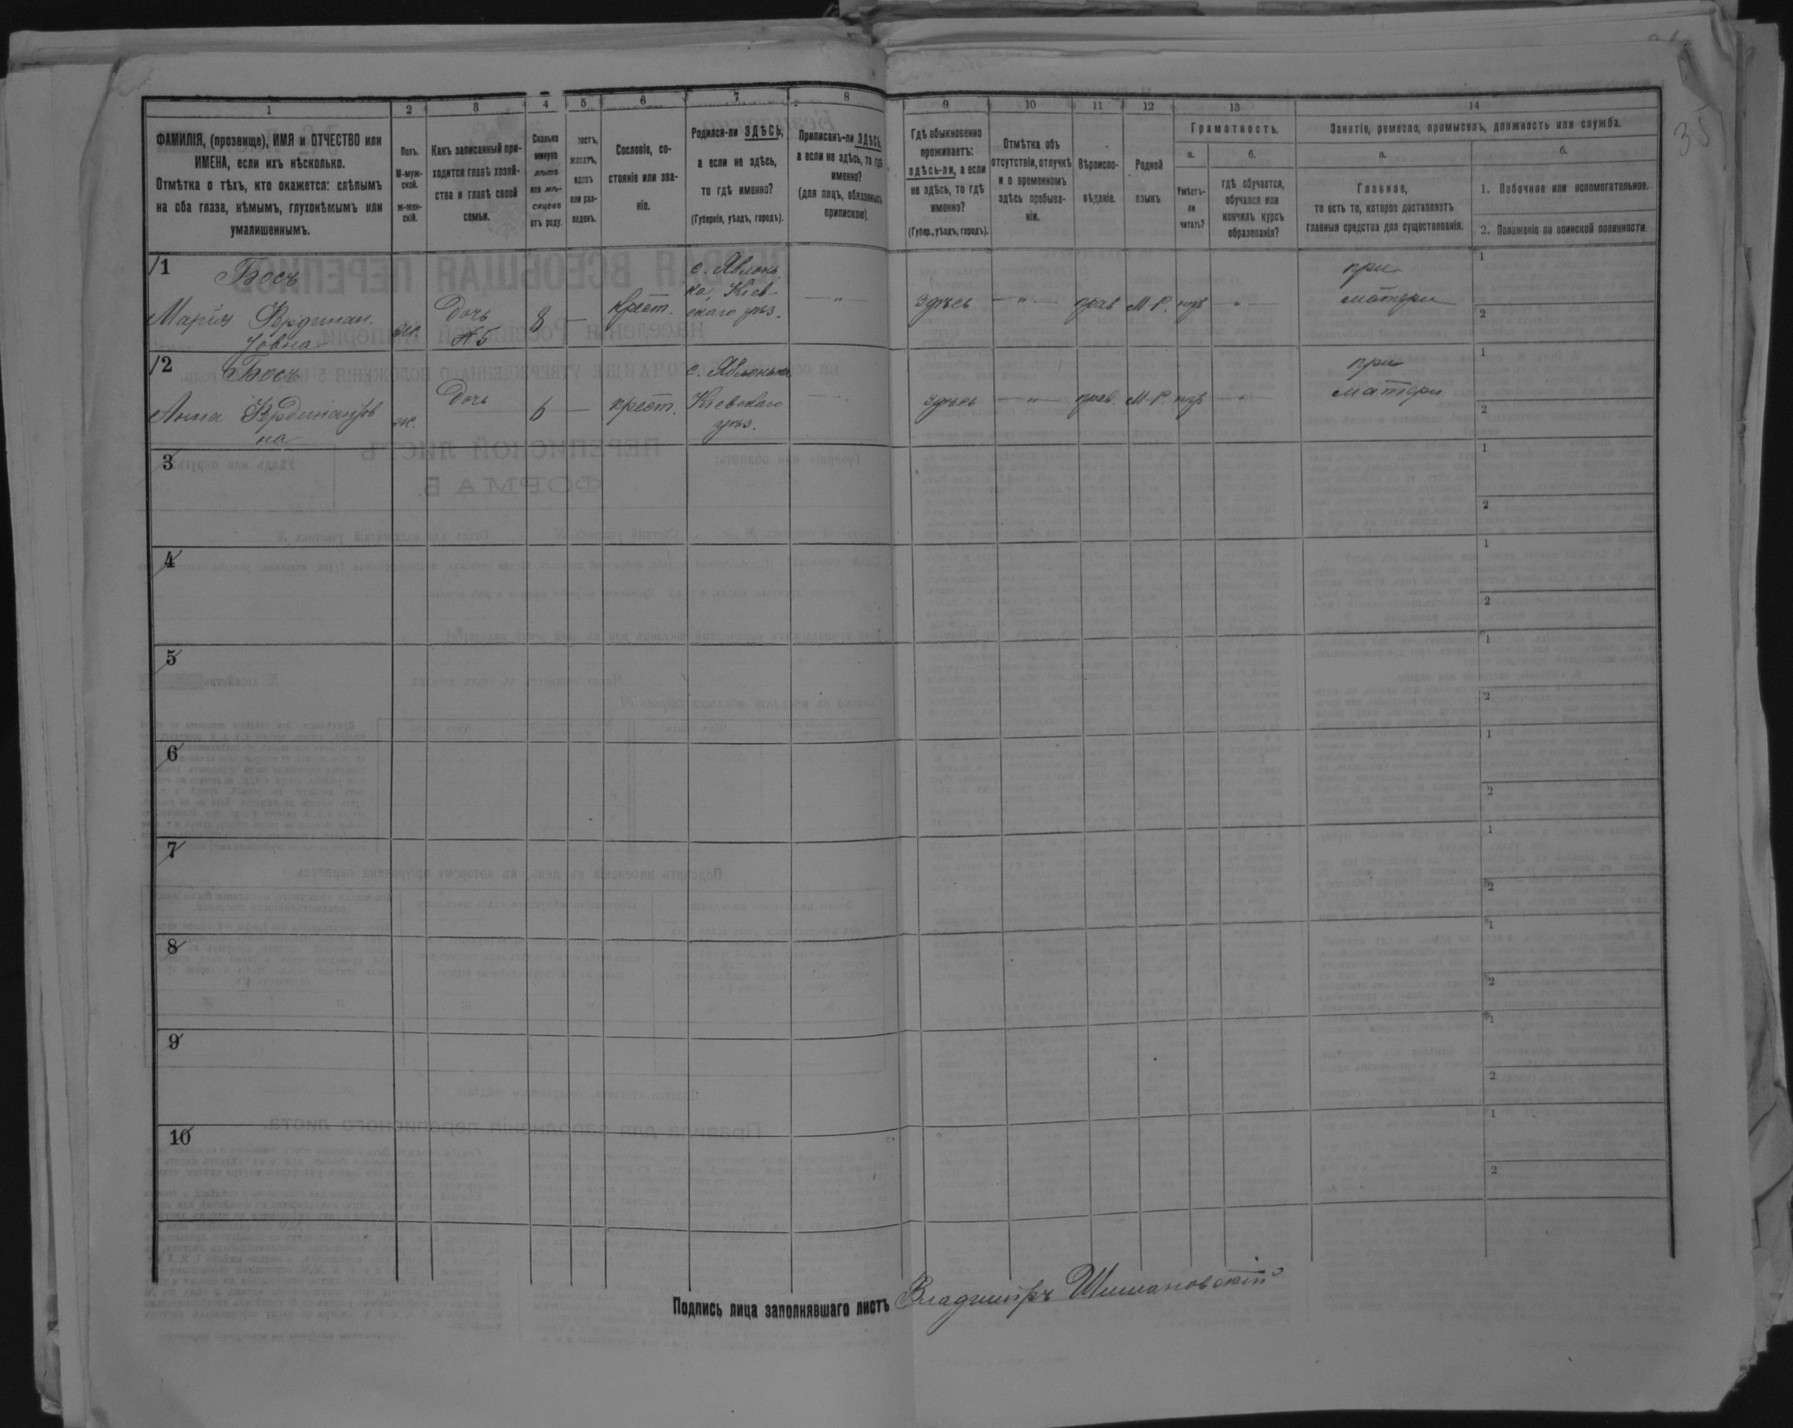 35
1 2 3 4 5 6 7 8 9 10 11 12 13 14
ФАМИЛІЯ, (прозвище), ИМЯ и ОТЧЕСТВО или
ИМЕНА, если ихъ нѣсколько.
Отмѣтка о тѣхъ, кто окажется: слѣпымъ
на оба глаза, нѣмымъ, глухонѣмымъ или
умалишеннымъ.
Полъ.
М-муж-
ской.
ж-жен-
скій.
Какъ записанный при-
ходится главѣ хозяй-
ства и главѣ своей
семьи.
Сколько
минуло
лѣтъ
или мѣ-
сяцевъ
отъ роду.
женатъ,
вдовъ
или раз-
веденъ.
Сословіе, со-
стояніе или зва-
ніе.
Родился-ли ЗДѢСЬ,
а если не здѣсь,
то гдѣ именно?
(Губернія, уѣздъ, городъ).
Приписанъ-ли ЗДѢСЬ,
а если не здѣсь, то гдѣ
именно?
(для лицъ, обязанныхъ
припискою)
Гдѣ обыкновенно
проживаетъ:
здѣсь-ли, а если
не здѣсь, то гдѣ
именно?
(Губер., уѣздъ, городъ).
Отмѣтка объ
отсутствіи, отлучкѣ
и о временномъ
здѣсь пребыва-
ніи.
Вѣроиспо-
вѣданіе.
Родной
языкъ
Грамотность.
а.
Умѣетъ-
ли
читать?
б.
гдѣ обучается,
обучался или
кончилъ курсъ
образованія?
Занятіе, ремесло, промыселъ, должность или служба.
а.
Главное,
то есть то, которое доставляетъ
главныя средства для существованія.
б.
1. Побочное или вспомогательное.
2. Положеніе по воинской повинности.
1
Босъ
Марія Фердинан-
довна
ж.
Дочь
№5
8 —
Крест.
с. Яблонь
ка, Кіев-
скаго уѣз.
— „ —
здѣсь
— „ —
прав
М-Р.
нѣтъ
при
матери
1
2
2
Босъ
Анна Фердинандов
на
ж.
Дочь
6 —
крест.
с. Яблонька
Кіевскаго
уѣз.
здѣсь
— „ —
прав.
М-Р
нѣтъ
при
матери
1
2
3
1
2
4
1
2
5
1
2
6
1
2
7
1
2
8
1
2
9
1
2
10
1
2
Подпись лица заполнявшаго листъ Владиміръ